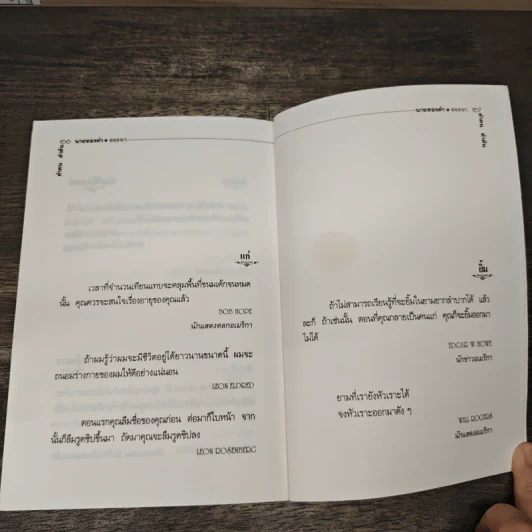 คำคน คำค้น
๑๖๖ นายทองคำ • สรรหา
แก่
เวลาที่จำนวนเทียนแทบจะคลุมพื้นที่ขนมเค้กจนหมด
นั้น คุณควรจะสนใจเรื่องอายุของคุณแล้ว
BOB HOPE
นักแสดงตลกอเมริกา
ถ้าผมรู้ว่าผมจะมีชีวิตอยู่ได้ยาวนานขนาดนี้ ผมจะ
ถนอมร่างกายของผมให้ดีอย่างแน่นอน
LEON ELDRED
ตอนแรกคุณลืมชื่อของคุณก่อน ต่อมาก็ใบหน้า จาก
นั้นก็ลืมรูดซิปขึ้นมา ถัดมาคุณจะลืมรูดซิปลง
LEON ROSENBERG
นายทองคำ • สรรหา
ยิ้ม
ถ้าไม่สามารถเรียนรู้ที่จะยิ้มในยามยากลำบากได้ แล้ว
ละก็ ถ้าเช่นนั้น ตอนที่คุณกลายเป็นคนแก่ คุณก็จะยิ้มออกมา
ไม่ได้
EDGAR W HOWE
นักข่าวอเมริกา
ยามที่เรายังหัวเราะได้
จงหัวเราะออกมาดัง ๆ
WILL ROGERS
นักแสดงอเมริกา